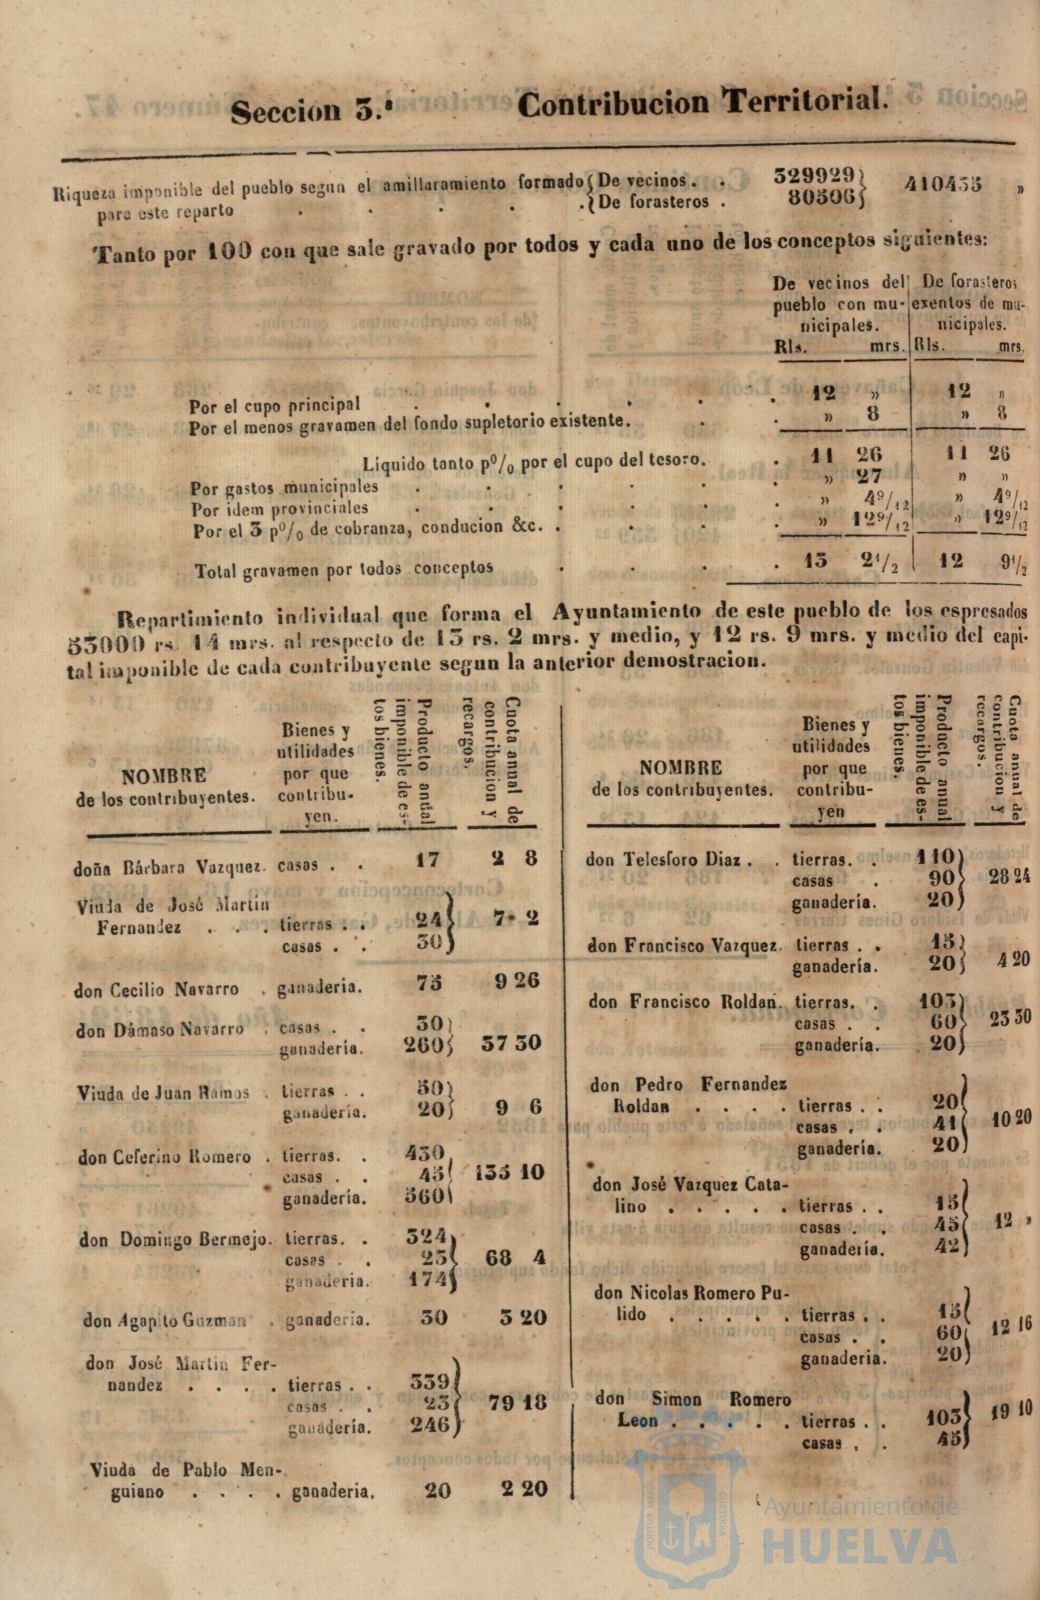 Seccion 3.ª Contribucion Territorial.
Riqueza imponible del pueblo segun el amillaramiento formado { De vecinos . . 329929 } 410435 »
para este reparto . . . . . { De forasteros . 80506 }
Tanto por 100 con que sale gravado por todos y cada uno de los conceptos siguientes:
De vecinos del De forasteros
pueblo con mu- exentos de mu-
nicipales. nicipales.
Rls. mrs. Rls. mrs.
Por el cupo principal . . . . . . 12 » 12 »
Por el menos gravamen del fondo supletorio existente. . . » 8 » 8
Líquido tanto p% por el cupo del tesoro. . 11 26 11 26
Por gastos municipales . . . . . . » 27 » »
Por idem provinciales . . . . . . » 4 9/12 » 4 9/12
Por el 3 p% de cobranza, conducion &c. . . . . » 12 9/12 » 12 9/12
Total gravamen por todos conceptos . . . . 13 2 1/2 12 9 1/2
Repartimiento individual que forma el Ayuntamiento de este pueblo de los espresados
53000 rs. 14 mrs. al respecto de 13 rs. 2 mrs. y medio, y 12 rs. 9 mrs. y medio del capi-
tal imponible de cada contribuyente segun la anterior demostracion.
NOMBRE
de los contribuyentes.
Bienes y
utilidades
por que
contribu-
yen.
Producto anual
imponible de es-
tos bienes.
Cuota anual de
contribucion y
recargos.
doña Bárbara Vazquez. casas . . 17 2 8
Viuda de José Martin
Fernandez . . . tierras . . 24 } 7 2
casas . . 30 }
don Cecilio Navarro . ganaderia. 75 9 26
don Dámaso Navarro . casas . . 30 }
ganadería. 260 } 37 30
Viuda de Juan Ramos . tierras . . 50 }
ganadería. 20 } 9 6
don Ceferino Romero . tierras. . 430
casas . . 45 } 135 10
ganadería. 560 }
don Domingo Bermejo. tierras. . 324
casas . . 23 } 68 4
ganaderia. 174 }
don Agapito Guzman . ganadería. 30 3 20
don José Martin Fer-
nandez . . . . tierras . . 339 }
casas . . 23 } 79 18
ganadería. 246 }
Viuda de Pablo Men-
guiano . . . . ganaderia. 20 2 20
NOMBRE
de los contribuyentes.
Bienes y
utilidades
por que
contribu-
yen
Producto anual
imponible de es-
tos bienes.
Cuota anual de
contribucion y
recargos.
don Telesforo Diaz . . tierras. . 110 }
casas . 90 } 28 24
ganadería. 20 }
don Francisco Vazquez. tierras . . 15 }
ganadería. 20 } 4 20
don Francisco Roldan. tierras. . 103 }
casas . . 60 } 23 30
ganadería. 20 }
don Pedro Fernandez
Roldan . . . . tierras . . 20 }
casas . . 41 } 10 20
ganadería. 20 }
don José Vazquez Cata-
lino . . . . . tierras . . 15 }
casas . . 45 } 12 »
ganadería. 42 }
don Nicolas Romero Pu-
lido . . . . . tierras . . 15 }
casas . . 60 } 12 16
ganaderia. 20 }
don Simon Romero
Leon . . . . . tierras . . 103 } 19 10
casas . . 45 }
Ayuntamiento de
HUELVA